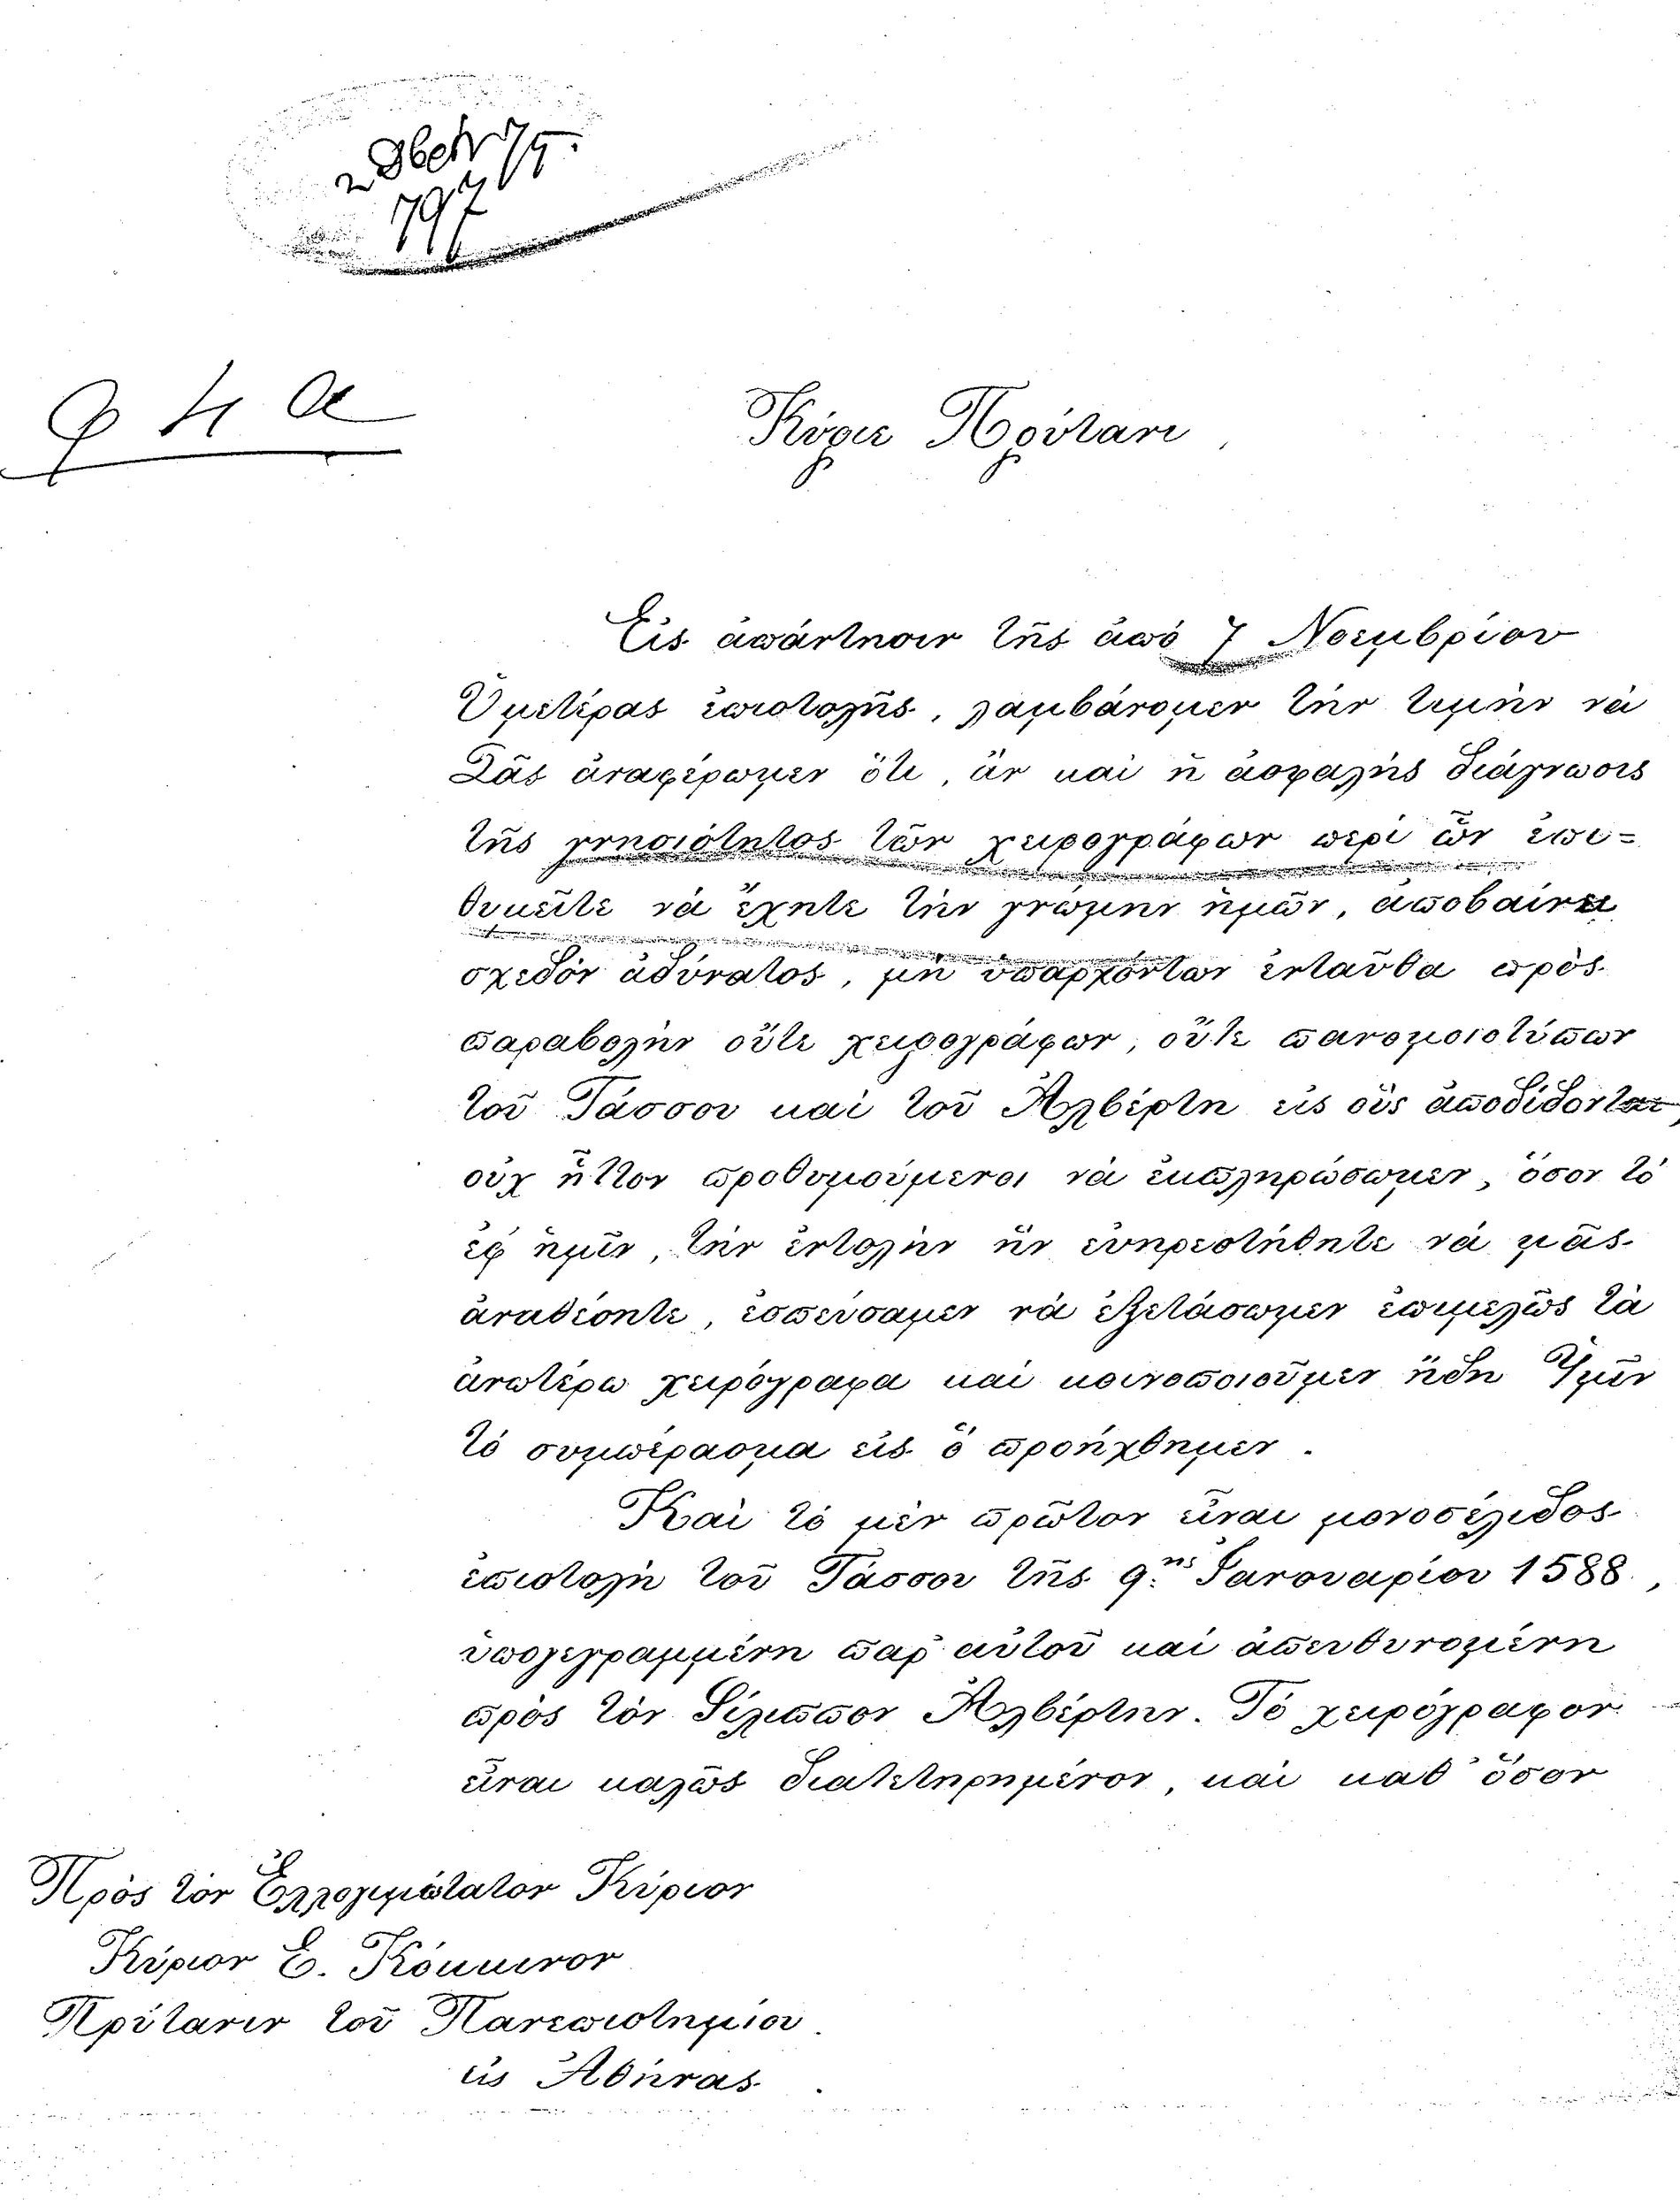 2 Δβρ 75.
797
Κύριε Πρύτανι
Εἰς ἀπάντησιν τῆς ἀπό 7 Νοεμβρίου
Ὑμετέρας ἐπιστολῆς, λαμβάνομεν τήν τιμὴν νὰ
Σᾶς ἀναφέρωμεν ὅτι, ἄν καὶ ἡ ἀσφαλὴς διάγνωσις
τῆς γνησιότητος τῶν χειρογράφων περί ὧν ἐπι=
θυμεῖτε νά ἔχητε τὴν γνώμην ἡμῶν, ἀποβαίνει
σχεδόν ἀδύνατος, μὴ ὑπαρχόντων ἐνταῦθα πρὸς
παραβολὴν οὔτε χειρογράφων, οὔτε πανομοιοτύπων
τοῦ Τάσσου καὶ τοῦ Ἀλβέρτη εἰς οὓς ἀποδίδονται,
οὐχ ἧττον προθυμούμενοι νὰ ἐκπληρώσωμεν, ὅσον τό
ἐφ' ἡμῖν, τήν ἐντολὴν ἥν εὐηρεστήθητε νά μᾶς
ἀναθέσητε, ἐσπεύσαμεν νὰ ἐξετάσωμεν ἐπιμελῶς τὰ
ἀνωτέρω χειρόγραφα καὶ κοινοποιοῦμεν ἤδη Ὑμῖν
τό συμπέρασμα εἰς ὅ προήχθημεν.
Καὶ τό μέν πρῶτον εἶναι μονοσέλιδος
ἐπιστολὴ τοῦ Τάσσου τῆς 9ης Ἰανουαρίου 1588,
ὑπογεγραμμένη παρ' αὐτοῦ καί ἀπευθυνομένη
πρὸς τόν Φίλιππον Ἀλβέρτην. Τό χειρόγραφον
εἶναι καλῶς διατετηρημένον, καὶ καθ' ὅσον
Πρὸς τόν Ἐλλογιμώτατον Κύριον
Κύριον Ε. Κόκκινον
Πρύτανιν τοῦ Πανεπιστημίου
εἰς Ἀθήνας.